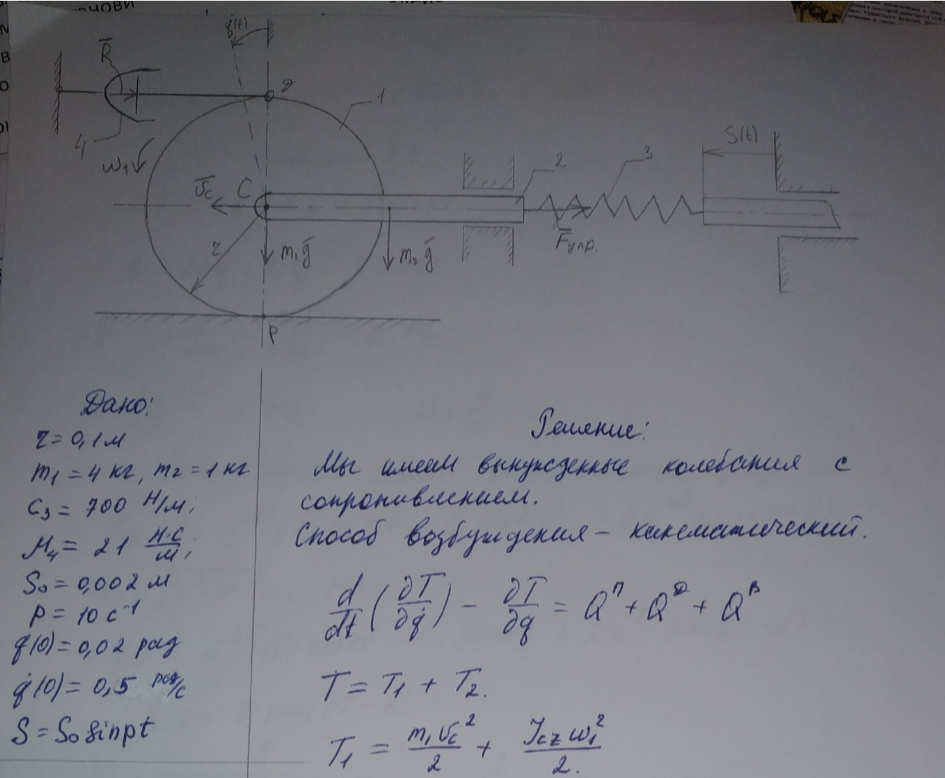 q(t)
R̅
1
4
ω₁
v̅c
C
m₁g̅
m₂g̅
2
3
F̅упр.
S(t)
r
P
Дано:
r = 0,1 м
m₁ = 4 кг, m₂ = 1 кг
C₃ = 700 Н/м;
μ₄ = 21 Н·с/м;
S₀ = 0,002 м
p = 10 с⁻¹
q(0) = 0,02 рад
q̇(0) = 0,5 рад/с
S = S₀ sin pt
Решение:
Мы имеем вынужденные колебания с
сопротивлением.
Способ возбуждения – кинематический.
d/dt (∂T/∂q̇) − ∂T/∂q = Qᴨ + Qᴰ + Qᴮ
T = T₁ + T₂.
T₁ = m₁vc²/2 + Jcz ω₁²/2.